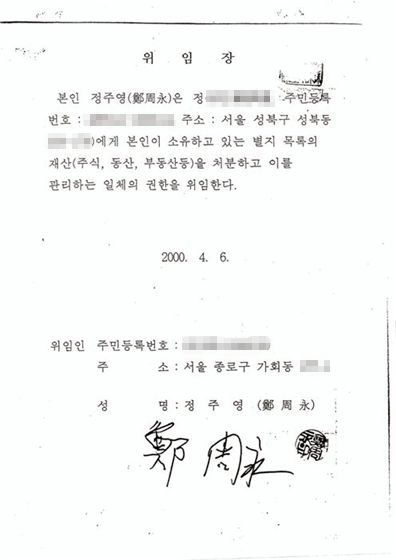 위 임 장
본인 정주영(鄭周永)은 정 주민등록
번호 : 주소 : 서울 성북구 성북동
)에게 본인이 소유하고 있는 별지 목록의
재산(주식, 동산, 부동산등)을 처분하고 이를
관리하는 일체의 권한을 위임한다.
2000. 4. 6.
위임인 주민등록번호 :
주 소 : 서울 종로구 가회동
성 명 : 정 주 영 (鄭 周 永)
鄭 周 永